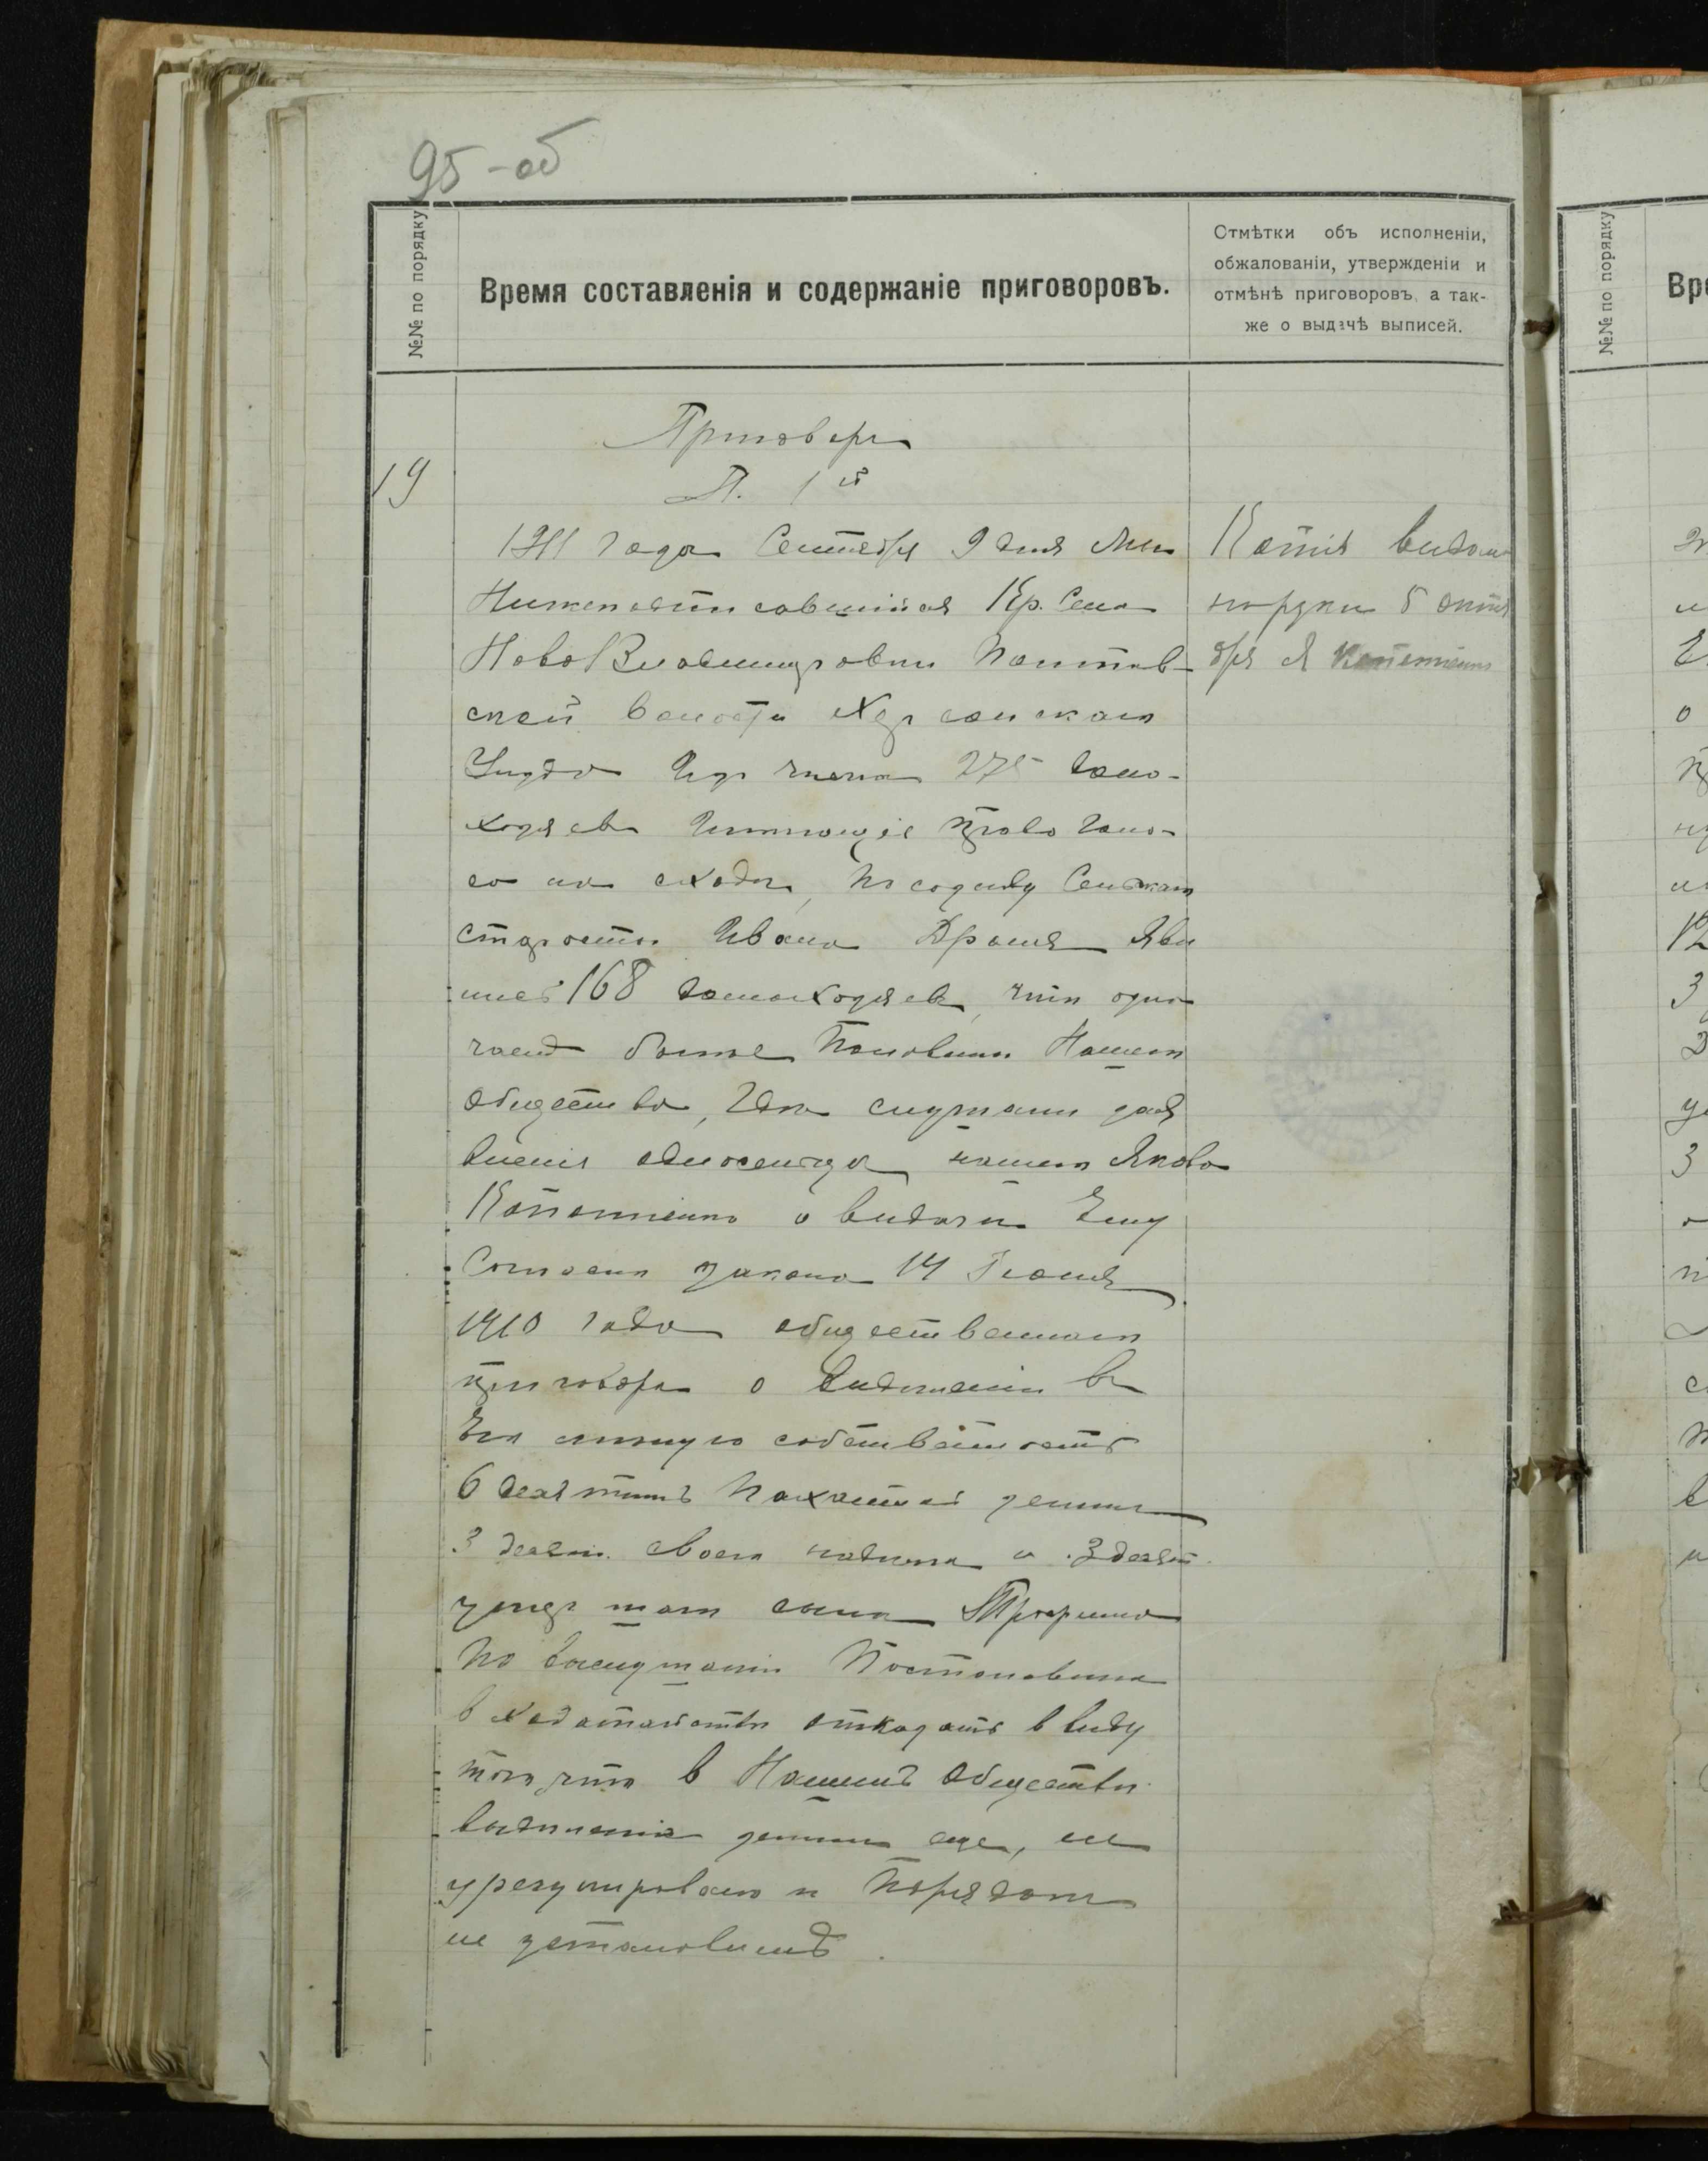 95-об
№№ по порядку
Время составленія и содержаніе приговоровъ.
Отмѣтки объ исполненіи,
обжалованіи, утвержденіи и
отмѣнѣ приговоровъ, а так-
же о выдачѣ выписей.
Приговоръ
19
П. 1й
1911 года Сентября 9 дня Мы
Нижеподписавшійся Кр. Села
Ново Владимировки
ской волости Херсонскаго
Уѣзда Изъ числа 275 домо-
хозяевъ Имѣющіе право голо-
са на сходѣ, по созыву Сельскаго
старосты Ивана Явы
лись 168 домохозяевъ, что одна
часть болѣе Половины Нашего
общества, Гдѣ слушали заяв
вленія односельца нашего Якова
о видачи Ему
Согласно закона 14 Іюня
1910 года общественнаго
приговора о видѣленіи въ
Его личную собственность
6 десятинъ Пахатной земли
3 десят. своего надѣла и 3 десят.
умер шаго сына Трофима
По выслушаніи Постановили
в ходатайствѣ отказать в виду
того что в Нашемъ обществѣ
выдѣленія земли еще, не
урегулировано и Порядокъ
не установленъ.
Копія видана
на руки 5 октя
бря Я
№№ по порядку
Вре